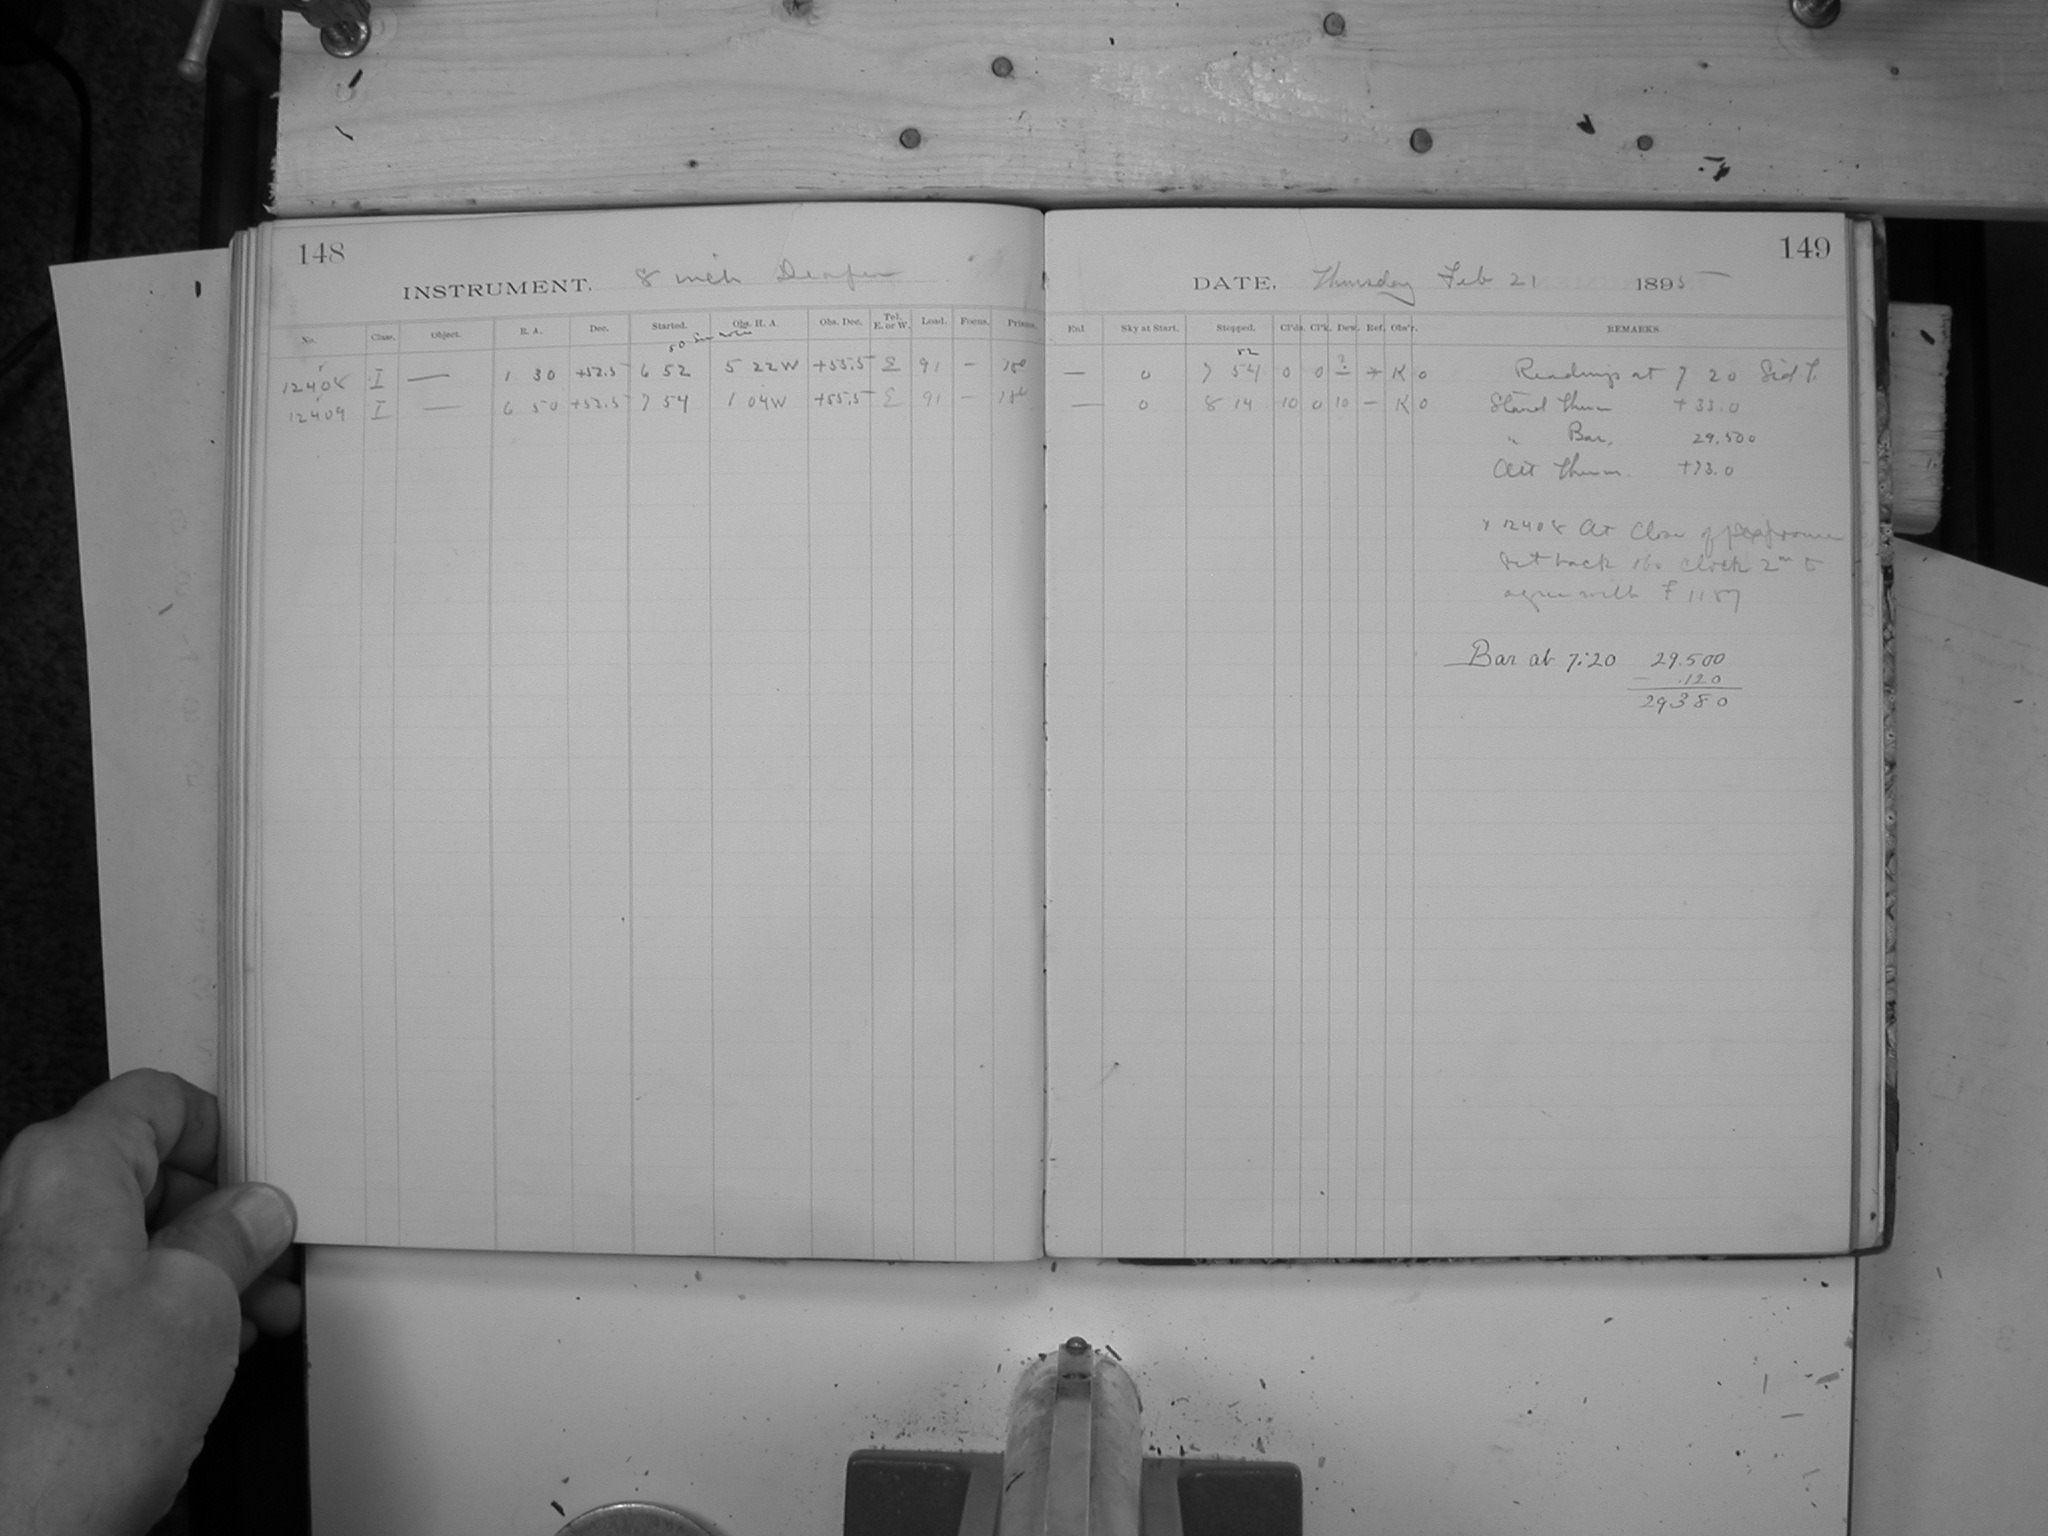 148
INSTRUMENT. 8 inch Draper
No. Class. Object. R. A. Dec. Started. Obs. H. A. Obs. Dec. Tel. E. or W. Load. Focus. Prisms.
50 See note
12408 I — 1 30 +52.5 6 52 5 22 W +55.5 E 91 — 180
12409 I — 6 50 +52.5 7 54 1 04 W +55.5 E 91 — 180
149
DATE, Thursday Feb 21 1895
Enl Sky at Start. Stopped. Cl'ds. Cl'k. Dew. Ref. Obs'r. REMARKS.
52
— 0 7 54 0 0 + K 0 Readings at 7 20 Sid T.
— 0 8 14 10 0 10 — K 0 Stand Therm +33.0
" Bar. 29.500
Att Therm. +73.0
x 12408 At Close of
set back the clock 2m to
agree with F 1157
Bar at 7:20 29.500
— .120
29380